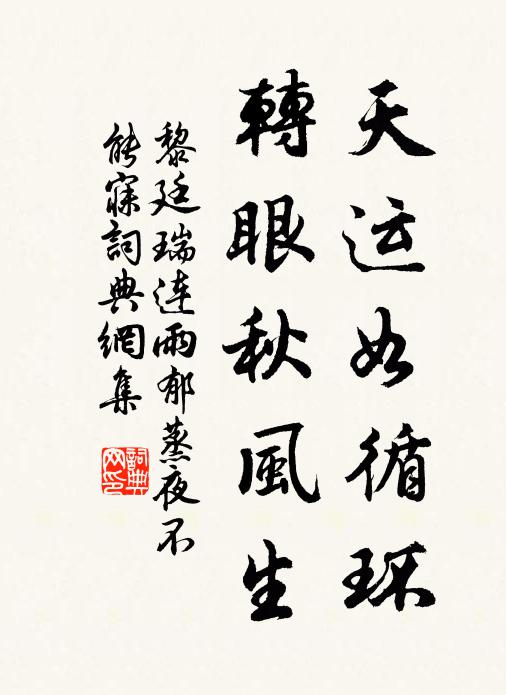 天运如循环
轉眼秋風生
黎廷瑞连雨郁蒸夜不
能寐詞典網集
詞典網印